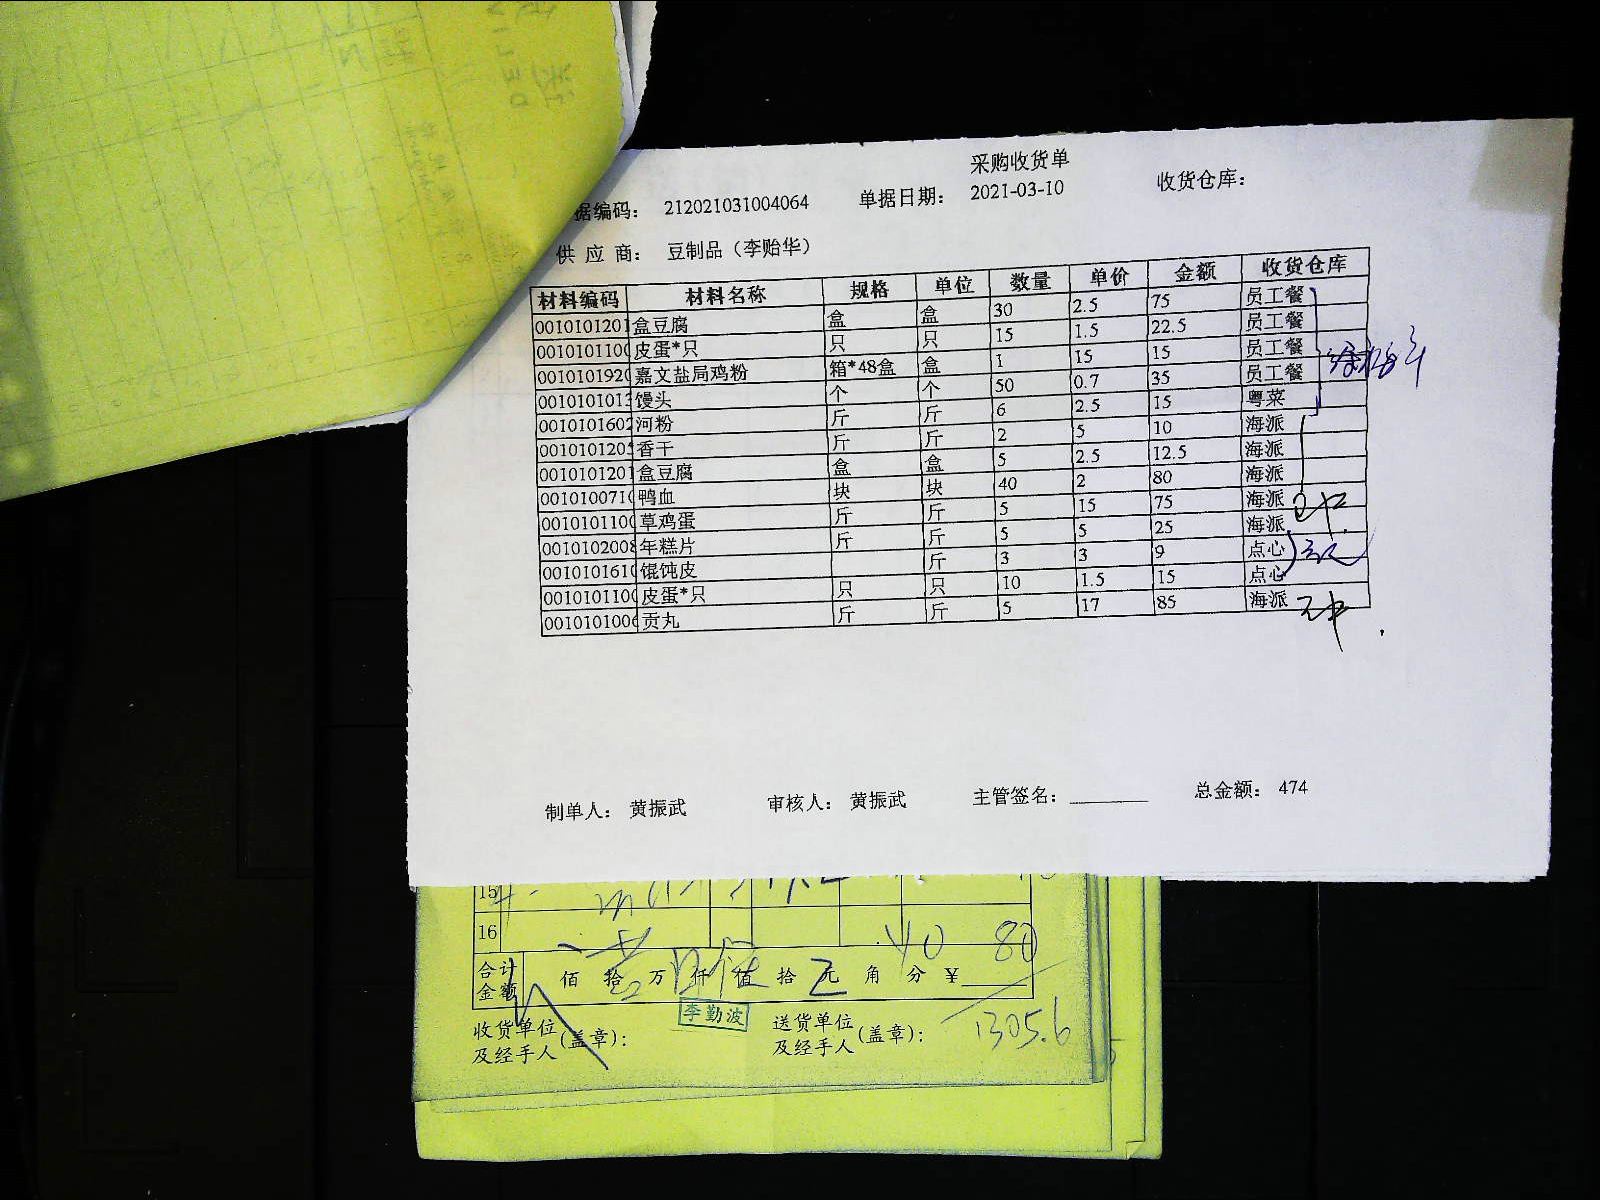 采购收货单
据编码： 212021031004064 单据日期： 2021-03-10 收货仓库：
供 应 商： 豆制品（李贻华）
材料编码 材料名称 规格 单位 数量 单价 金额 收货仓库
0010101201 盒豆腐 盒 盒 30 2.5 75 员工餐
001010110 皮蛋*只 只 只 15 1.5 22.5 员工餐
001010192 嘉文盐局鸡粉 箱*48盒 盒 1 15 15 员工餐
001010101 馒头 个 个 50 0.7 35 员工餐
001010160 河粉 斤 斤 6 2.5 15 粤菜
001010120 香干 斤 斤 2 5 10 海派
0010101201 盒豆腐 盒 盒 5 2.5 12.5 海派
001010071 鸭血 块 块 40 2 80 海派
001010110 草鸡蛋 斤 斤 5 15 75 海派
001010200 年糕片 斤 斤 5 5 25 海派
001010161 馄饨皮 斤 3 3 9 点心
001010110 皮蛋*只 只 只 10 1.5 15 点心
001010100 贡丸 斤 斤 5 17 85 海派
制单人： 黄振武 审核人： 黄振武 主管签名： 总金额： 474
15
16 40 80
合计金额 佰 拾 万 仟 佰 拾 元 角 分 ¥
李勤波
收货单位及经手人(盖章)： 送货单位及经手人(盖章)： 1305.6